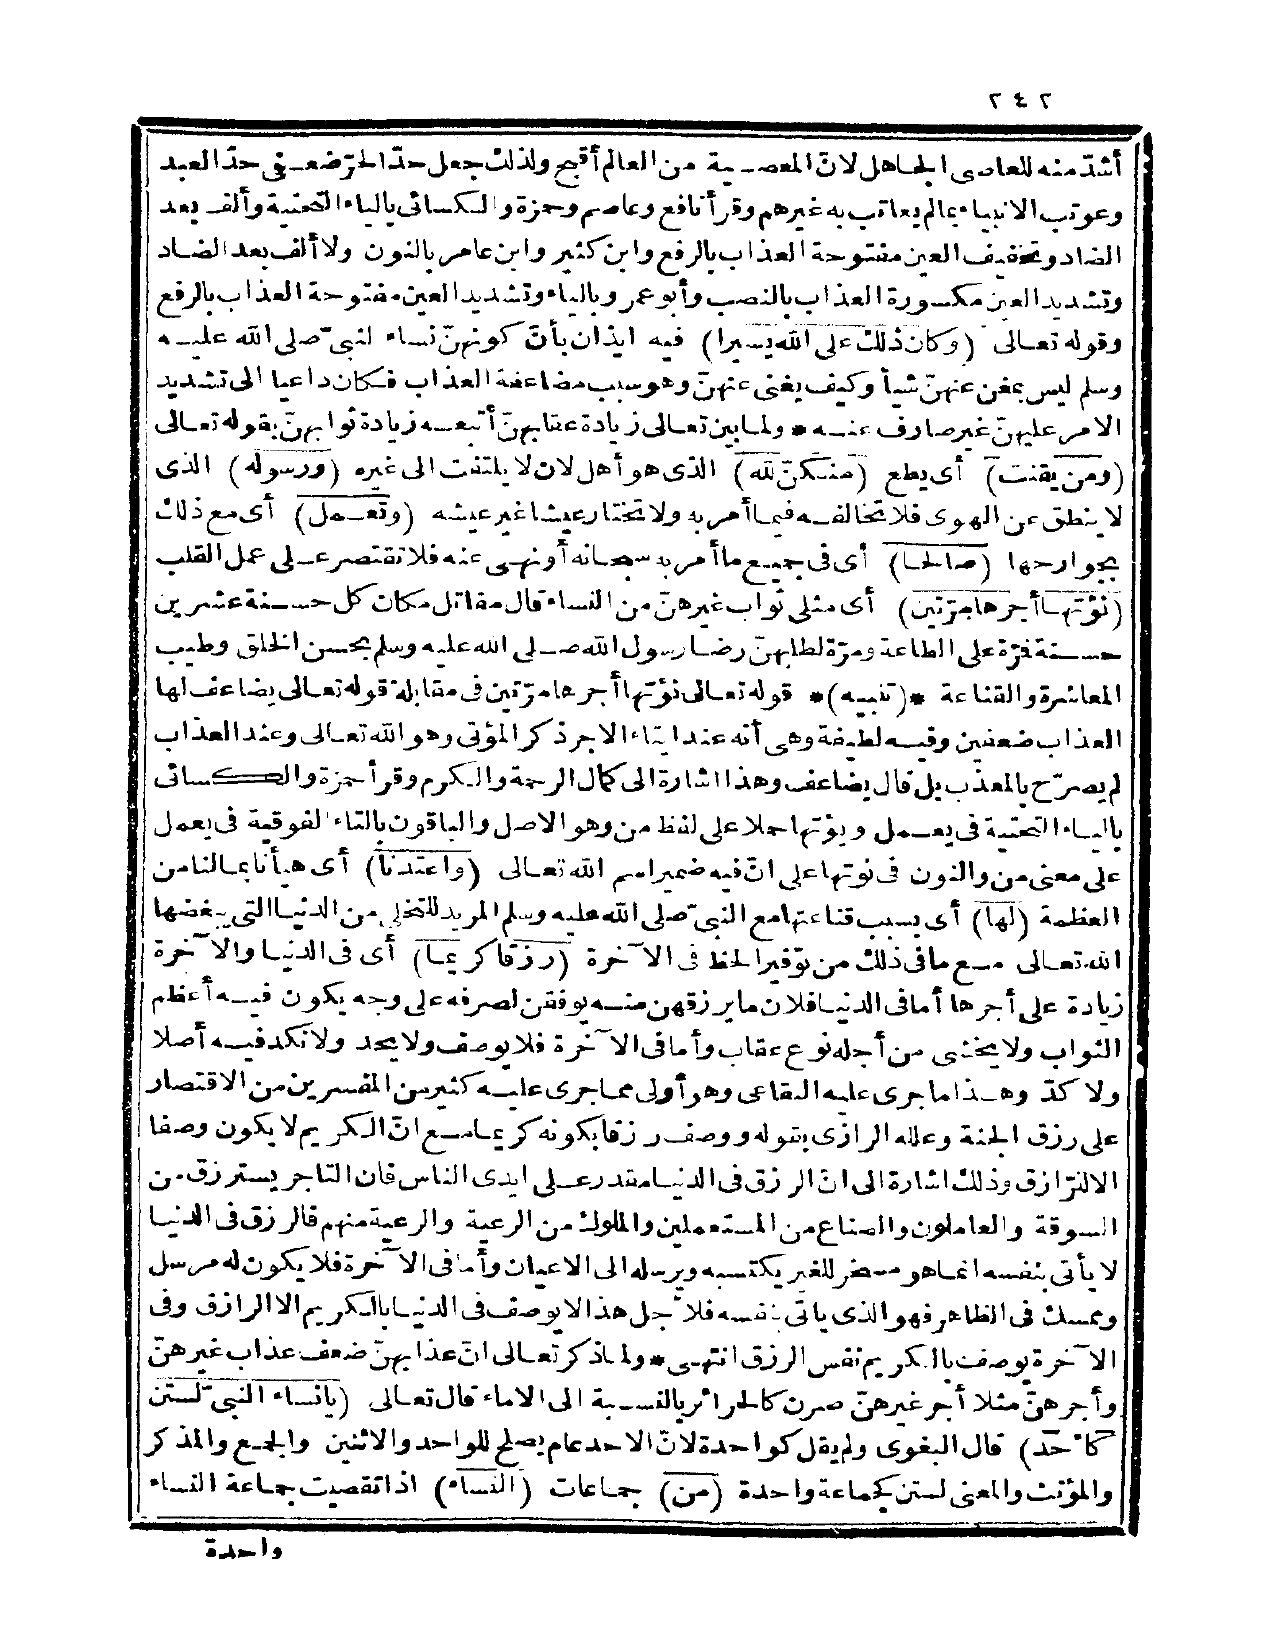 ٢٤٢
أشدّ منه للعاصى الجاهل لانّ المعصية من العالم أقبح ولذلك جعل حدّ الحرّ ضعفى حدّ العبد
وعوتب الانبياء بما لم يعاتب به غيرهم وقرأ نافع وعاصم وحمزة والكسائى بالياء التحتية وألف بعد
الضاد وتخفيف العين مفتوحة العذاب بالرفع وابن كثير وابن عامر بالنون ولا ألف بعد الضاد
وتشديد العين مكسورة العذاب بالنصب وأبو عمرو بالياء وتشديد العين مفتوحة العذاب بالرفع
وقوله تعالى (وكان ذلك على الله يسيرا) فيه ايذان بأنّ كونهنّ نساء لنبىّ صلى الله عليه
وسلم ليس بمغن عنهنّ شيأ وكيف يغنى عنهنّ وهو سبب مضاعفة العذاب فكان داعيا الى تشديد
الامر عليهنّ غير صارف عنه * ولما بين تعالى زيادة عقابهنّ أتبعه زيادة ثوابهنّ بقوله تعالى
(ومن يقنت) أى يطع (منكنّ لله) الذى هو أهل لان لا يلتفت الى غيره (ورسوله) الذى
لا ينطق عن الهوى فلا تخالفه فيما أمر به ولا تختار عيشا غير عيشه (وتعمل) أى مع ذلك
بجوارحها (صالحا) أى فى جميع ما أمر به سبحانه أو نهى عنه فلا تقتصر على عمل القلب
(نؤتها أجرها مرّتين) أى مثلى ثواب غيرهنّ من النساء قال مقاتل مكان كل حسنة عشرين
حسنة فمرّة على الطاعة ومرّة لطلبهنّ رضا رسول الله صلى الله عليه وسلم بحسن الخلق وطيب
المعاشرة والقناعة *(تنبيه)* قوله تعالى نؤتها أجرها مرّتين فى مقابلة قوله تعالى يضاعف لها
العذاب ضعفين وفيه لطيفة وهى أنه عند ايتاء الاجر ذكر المؤتى وهو الله تعالى وعند العذاب
لم يصرّح بالمعذب بل قال يضاعف وهذا اشارة الى كمال الرحمة والكرم وقرأ حمزة والكسائى
بالياء التحتية فى يعمل ويؤتها حملا على لفظ من وهو الاصل والباقون بالتاء الفوقية فى يعمل
على معنى من والنون فى نؤتها على انّ فيه ضمير اسم الله تعالى (وأعتدنا) أى هيأنا بمالنا من
العظمة (لها) أى بسبب قناعتها مع النبىّ صلى الله عليه وسلم المريد للتخلى من الدنيا التى يبغضها
الله تعالى مع ما فى ذلك من توفير الحظ فى الآخرة (رزقا كريما) أى فى الدنيا والآخرة
زيادة على أجرها أما فى الدنيا فلان ما يرزقهن منه يوفقن لصرفه على وجه يكون فيه أعظم
الثواب ولا يخشى من أجله نوع عقاب وأما فى الآخرة فلا يوصف ولا يحد ولا نكد فيه أصلا
ولا كدّ وهذا ما جرى عليه البقاعى وهو أولى مما جرى عليه كثير من المفسرين من الاقتصار
على رزق الجنة وعلله الرازى بقوله ووصف رزقا بكونه كريما مع انّ الكريم لا يكون وصفا
الا للرزاق وذلك اشارة الى انّ الرزق فى الدنيا مقدر على ايدى الناس فان التاجر يسترزق من
السوقة والعاملون والصناع من المستعملين والملوك من الرعية والرعية منهم فالرزق فى الدنيا
لا يأتى بنفسه انما هو مسخر للغير يكتسبه ويرسله الى الاعيان وأما فى الآخرة فلا يكون له مرسل
وممسك فى الظاهر فهو الذى يأتى بنفسه فلاجل هذا لا يوصف فى الدنيا بالكريم الا الرازق وفى
الآخرة يوصف بالكريم نفس الرزق انتهى * ولما ذكر تعالى انّ عذابهنّ ضعف عذاب غيرهنّ
وأجرهنّ مثلا أجر غيرهنّ صرن كالحرائر بالنسبة الى الاماء قال تعالى (يانساء النبىّ لستن
كأحد) قال البغوى ولم يقل كواحدة لانّ الاحد عام يصلح للواحد والاثنين والجمع والمذكر
والمؤنث والمعنى لستن كجماعة واحدة (من) جماعات (النساء) اذا تقصيت جماعة النساء
واحدة